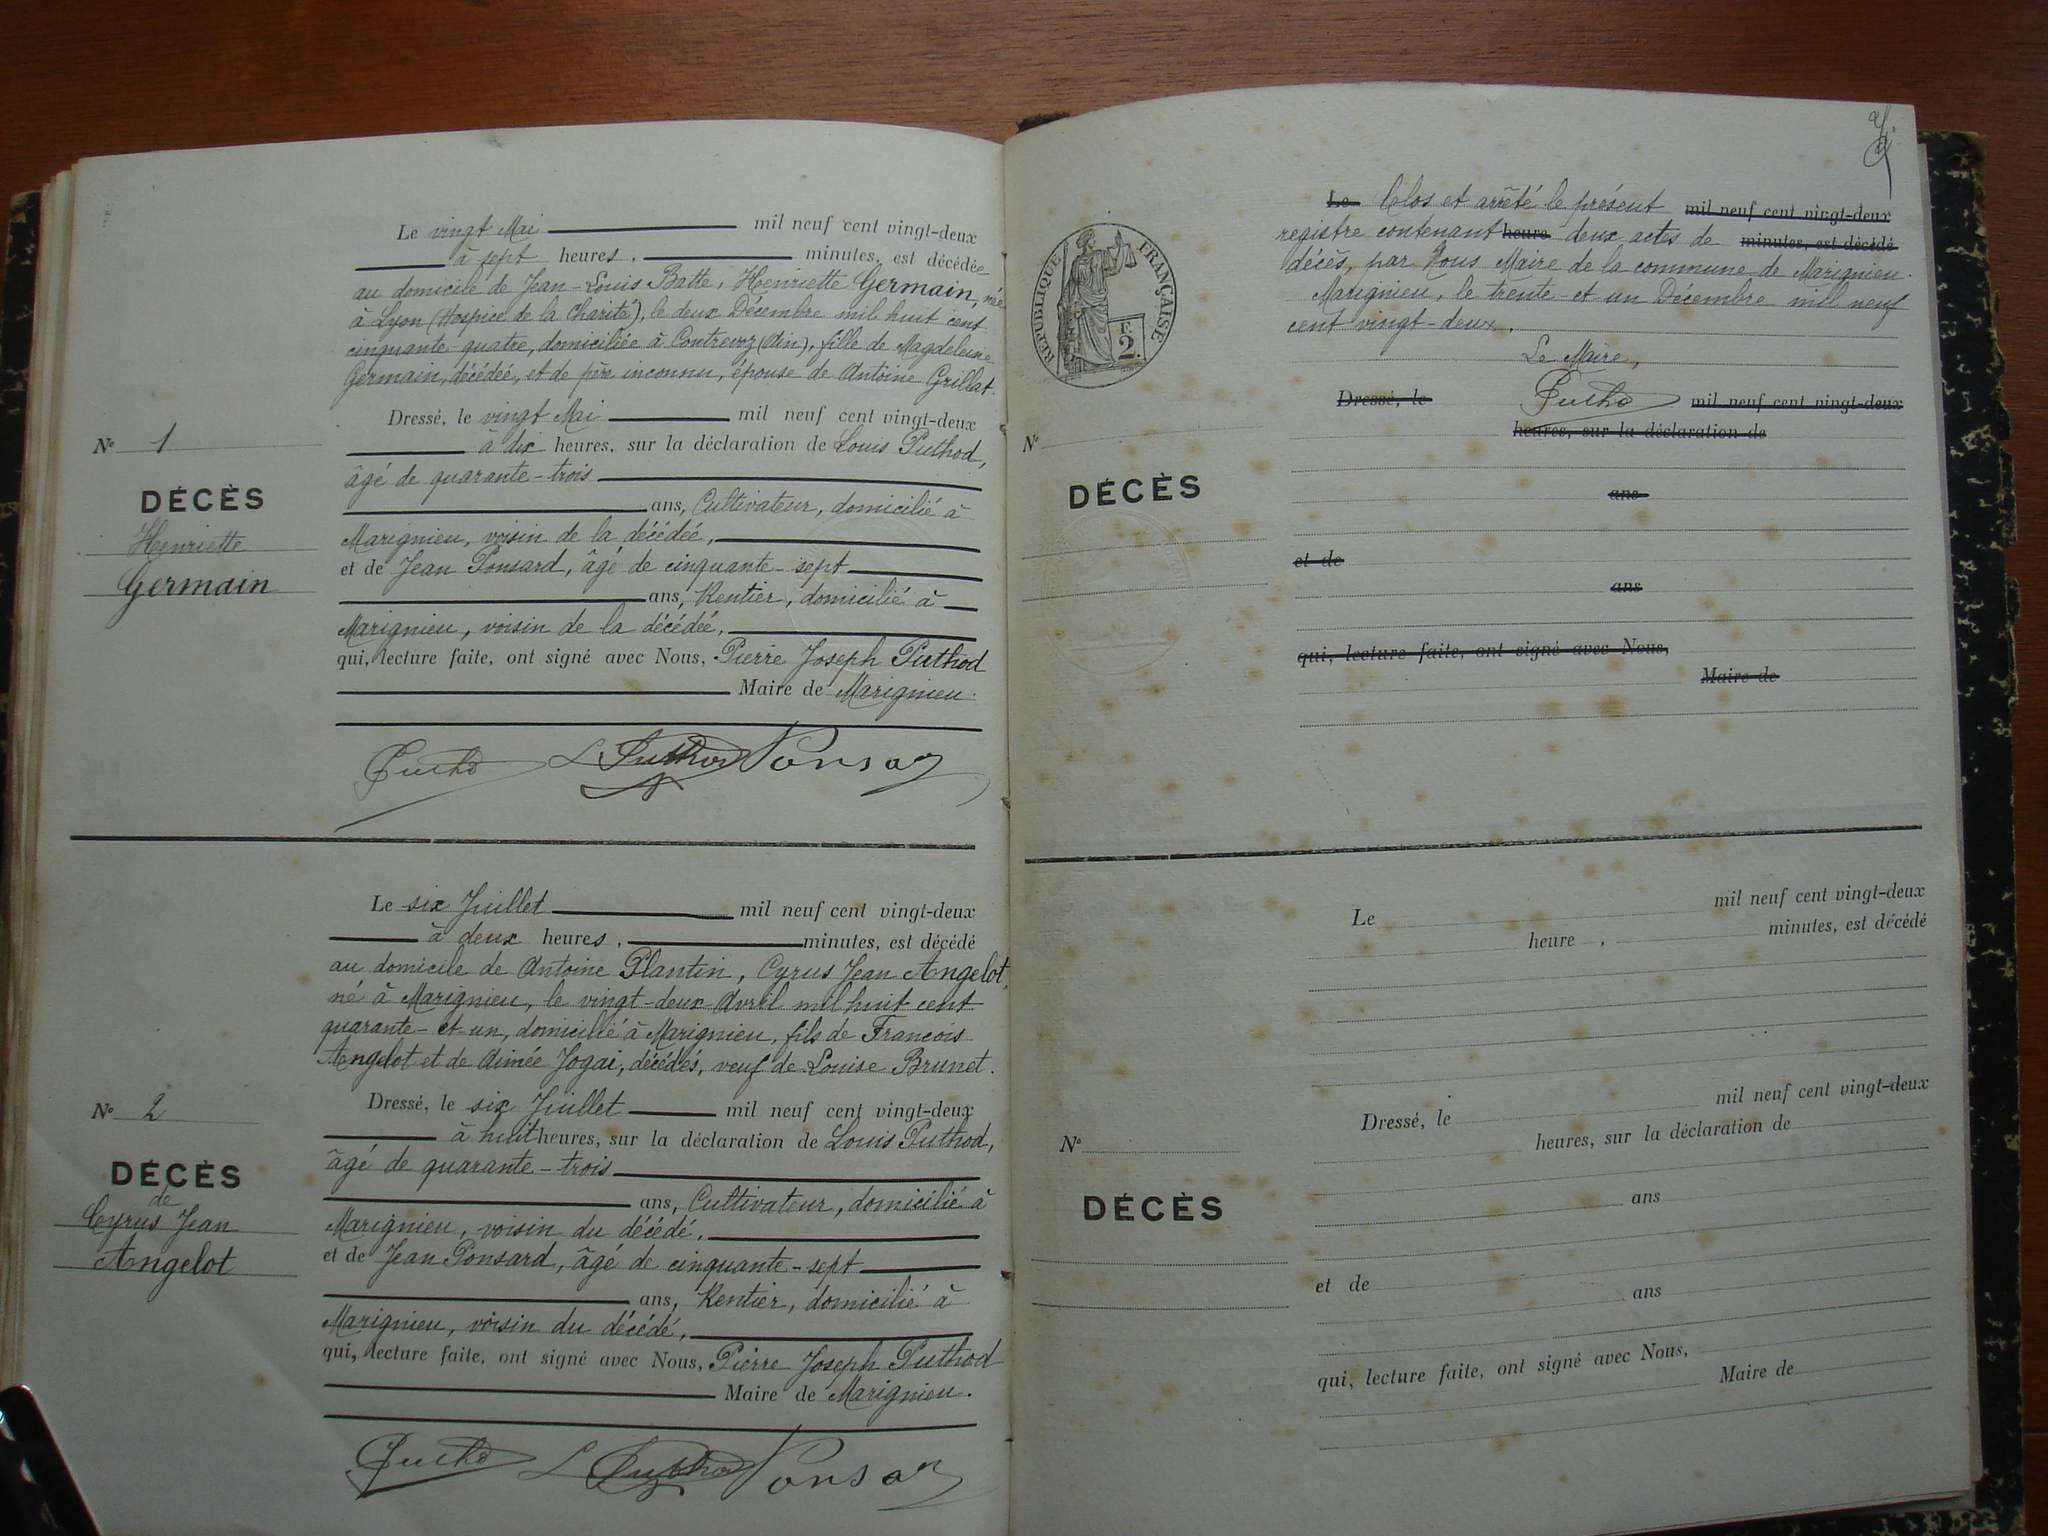 Le vingt Mai mil neuf cent vingt-deux
à sept heures, minutes, est décédée
au domicile de Jean-Louis Batte, Henriette Germain, née
à Lyon (Hospice de la Charité), le deux Décembre mil huit cent
cinquante-quatre, domiciliée à Contrevoz (Ain), fille de Magdeleine
Germain, décédée, et de père inconnu, épouse de Antoine Grillat.
Dressé, le vingt Mai mil neuf cent vingt-deux
à dix heures, sur la déclaration de Louis Puthod,
âgé de quarante-trois
ans, Cultivateur, domicilié à
Marignieu, voisin de la décédée,
et de Jean Ponsard, âgé de cinquante-sept
ans, Rentier, domicilié à
Marignieu, voisin de la décédée,
qui, lecture faite, ont signé avec Nous, Pierre Joseph Puthod
Maire de Marignieu.
Puthod L Puthod Ponsar
Nº 1
DÉCÈS
Henriette
Germain
Le six Juillet mil neuf cent vingt-deux
à deux heures, minutes, est décédé
au domicile de Antoine Plantin, Cyrus Jean Angelot,
né à Marignieu, le vingt-deux Avril mil huit cent
quarante-et un, domicilié à Marignieu, fils de Francois
Angelot et de Aimée Jogai, décédés, veuf de Louise Brunet.
Dressé, le six Juillet mil neuf cent vingt-deux
à huit heures, sur la déclaration de Louis Puthod,
âgé de quarante-trois
ans, Cultivateur, domicilié à
Marignieu, voisin du décédé,
et de Jean Ponsard, âgé de cinquante-sept
ans, Rentier, domicilié à
Marignieu, voisin du décédé,
qui, lecture faite, ont signé avec Nous, Pierre Joseph Puthod
Maire de Marignieu.
Puthod L Puthod Ponsar
Nº 2
DÉCÈS
de
Cyrus Jean
Angelot
RÉPUBLIQUE FRANÇAISE
F.
2.
Le Clos et arrêté le présent mil neuf cent vingt-deux
registre contenant heure deux actes de minutes, est décédé
décès, par Nous Maire de la commune de Marignieu.
Marignieu, le trente-et un Décembre mil neuf
cent vingt-deux.
Le Maire,
Dressé, le Puthod mil neuf cent vingt-deux
heures, sur la déclaration de
Nº
DÉCÈS
ans
et de
ans
qui, lecture faite, ont signé avec Nous,
Maire de
Le mil neuf cent vingt-deux
heure , minutes, est décédé
Dressé, le mil neuf cent vingt-deux
heures, sur la déclaration de
Nº
DÉCÈS
ans
et de
ans
qui, lecture faite, ont signé avec Nous,
Maire de